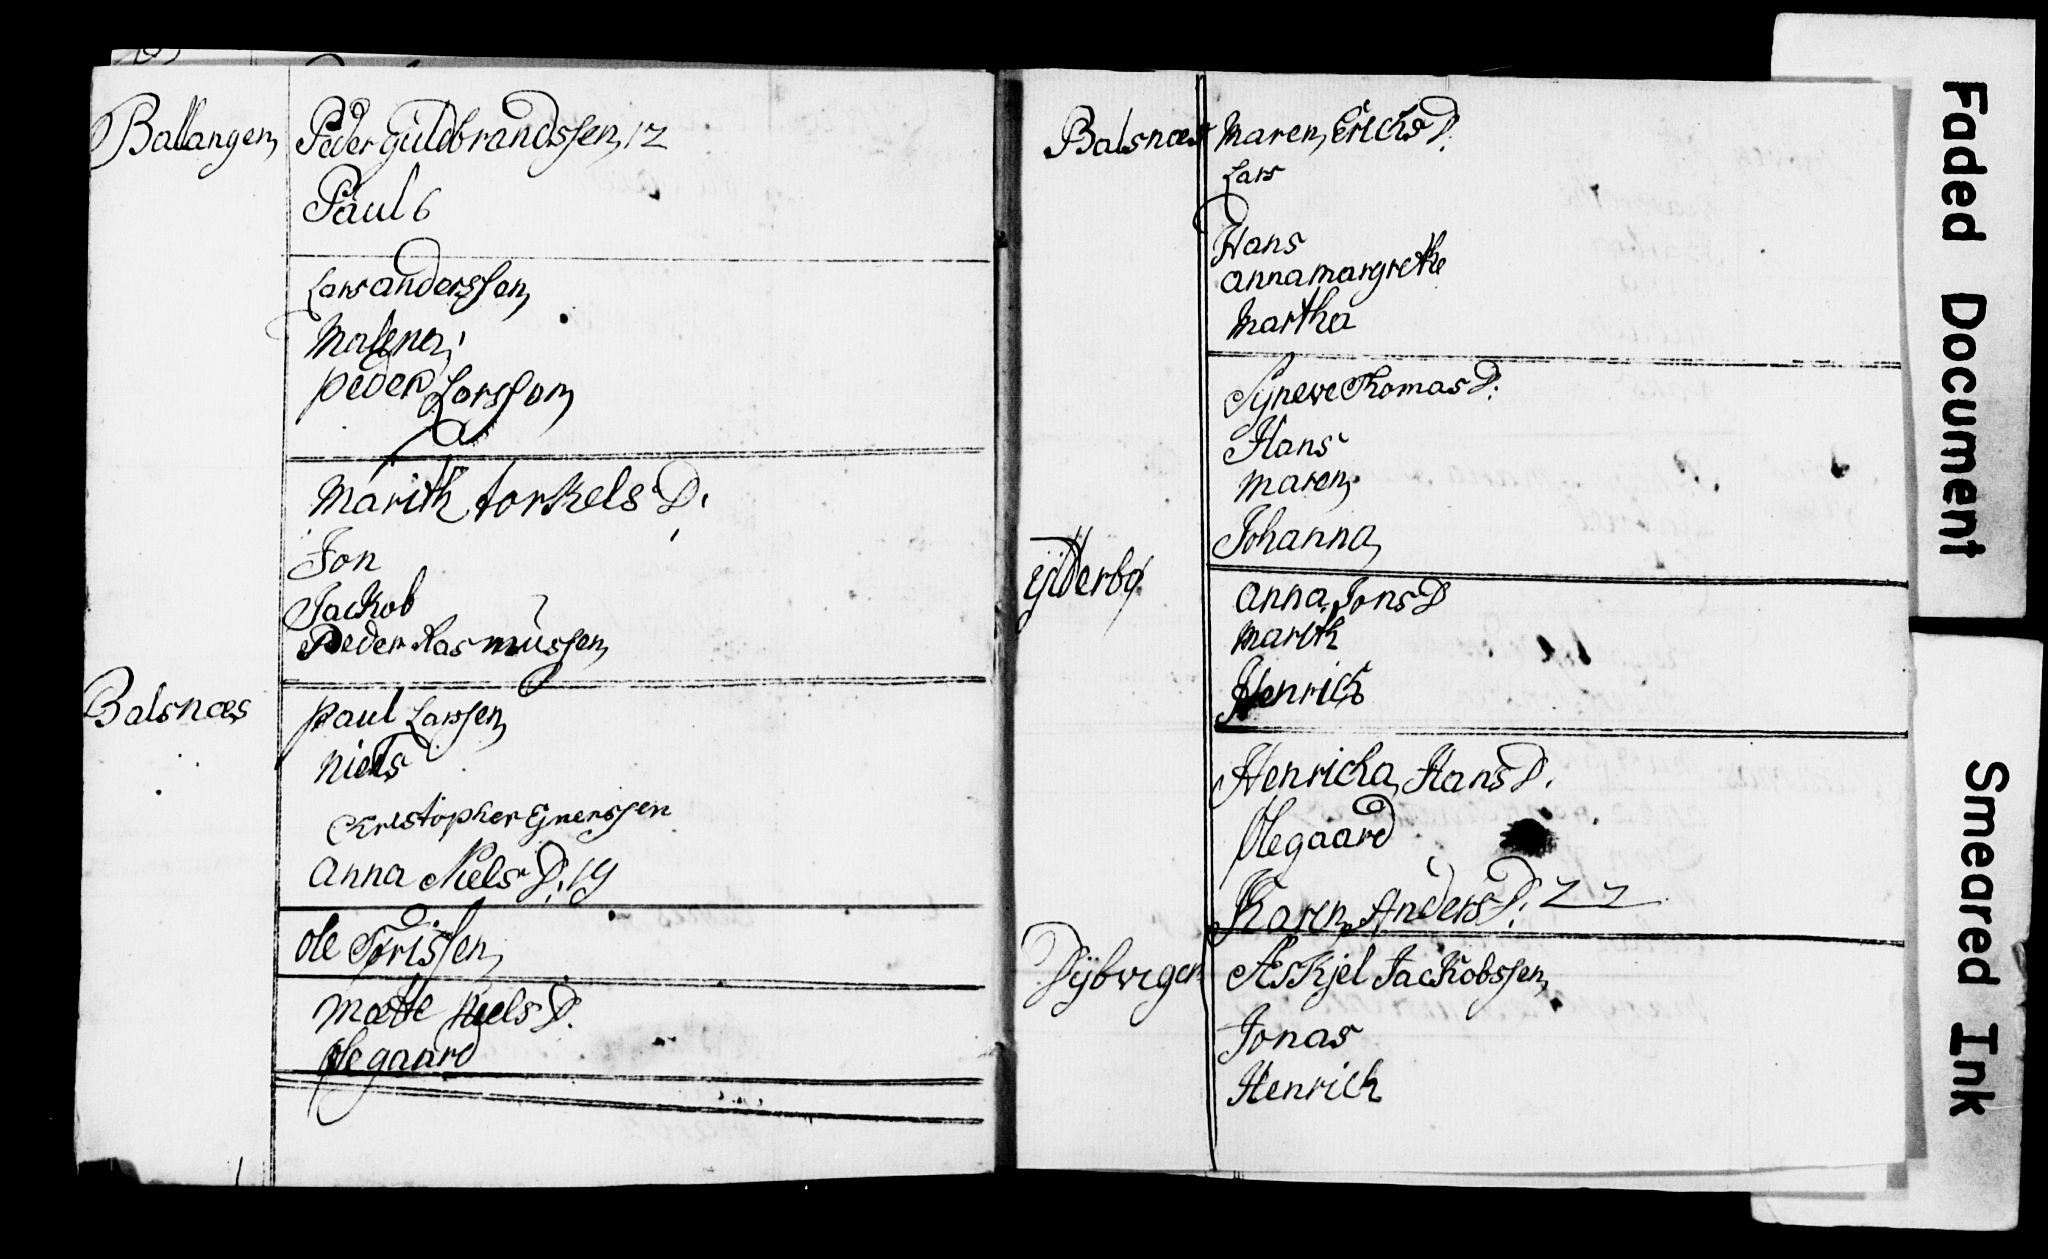 Ballangen Peder Guldbrandssen 12
Paul 6
Lars anderssen
Malena
peder Larsson
Marith torkels D.
Jon
Jackob
Peder Rasmussen
Balsnæs paul Larssen
Niels
Christopher Ejnerssen
Anna Niels D. 19
ole Törissen
Mætte Niels D.
Olegaard
Balsnæs Maren Erichs D.
Lars
Hans
annamargrethe
Martha
Syneve Thomas D.
Hans
Maren
Johanna
ÿtterbÿ Anna Jons D
Marith
Henrich
Henricha Hans D.
Olegaard
Karen Anders D. 22
Dÿbvigen Æskjel Jackobssen
Jonas
Henrich
Faded Document
Smeared Ink